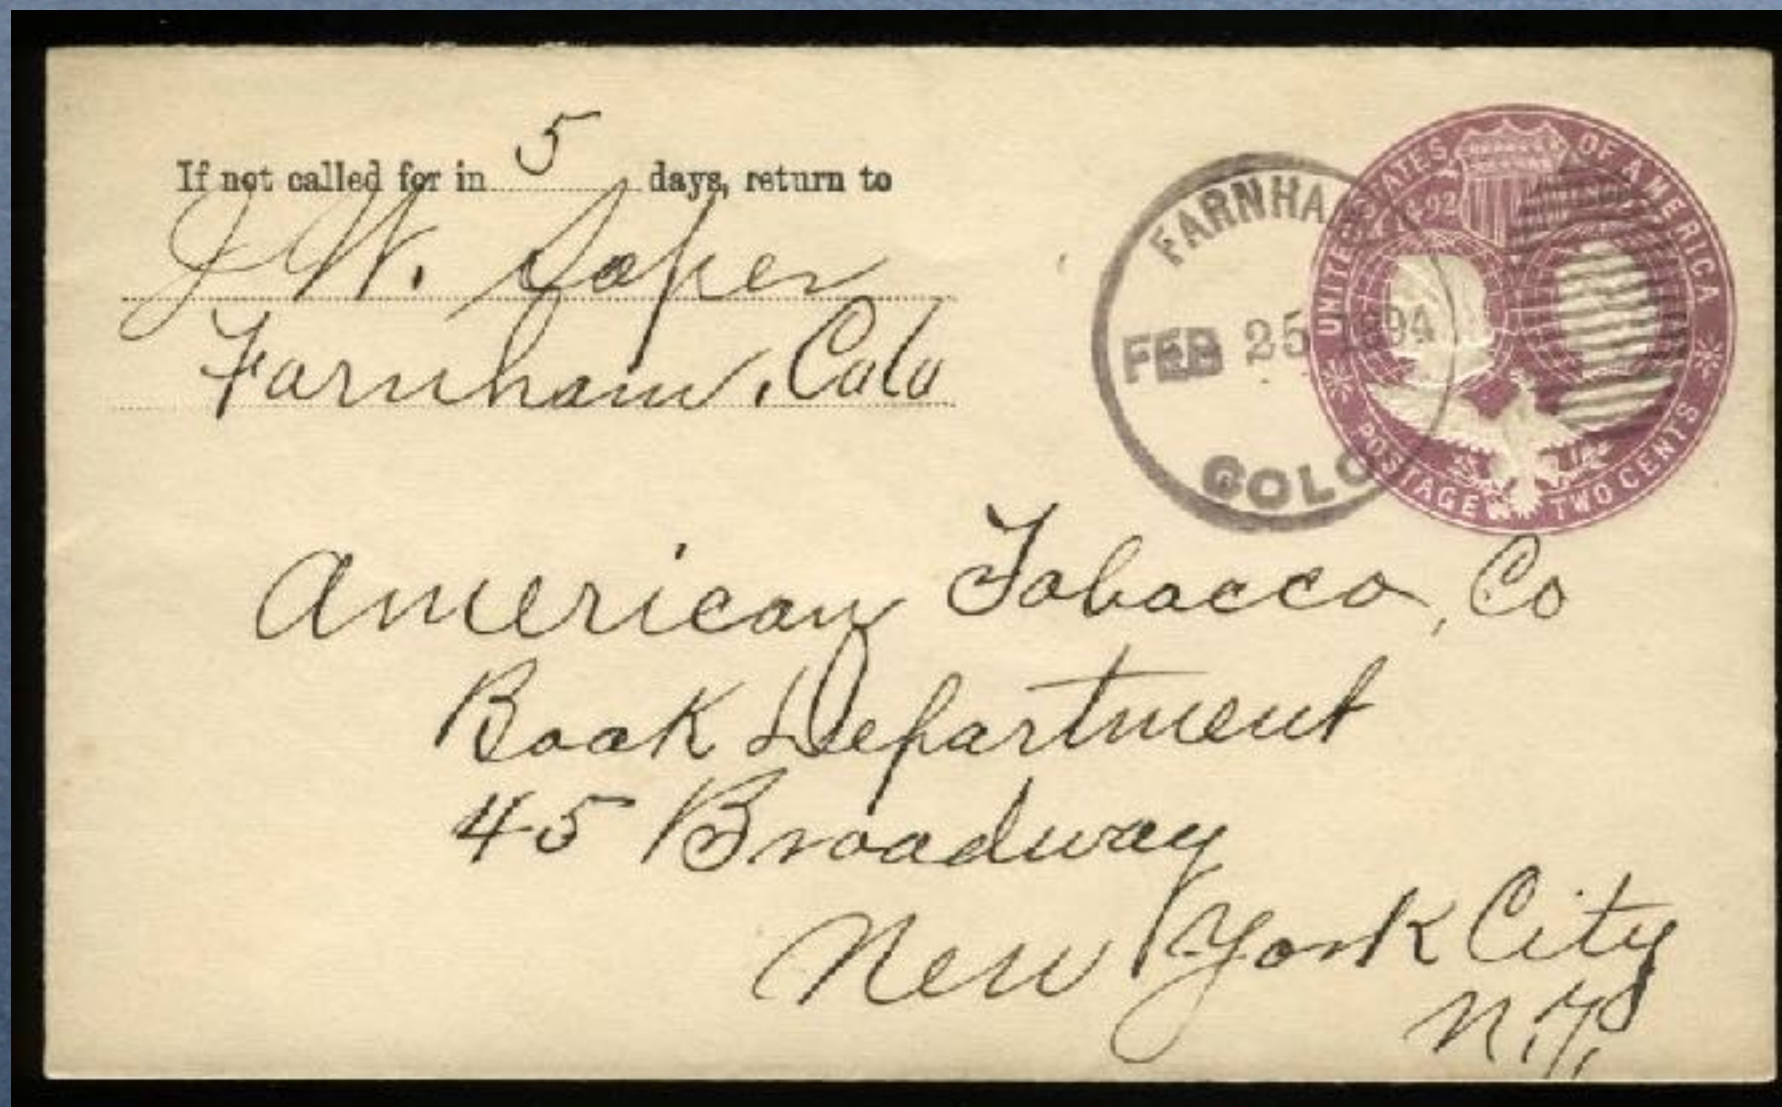 If not called for in 5 days, return to
J W. Soper
Farnham, Colo
FARNHA
FEB 25 1894
COLO
UNITED STATES OF AMERICA
1492
POSTAGE TWO CENTS
American Tobacco, Co
Book Department
45 Broadway
New York City
N.Y.